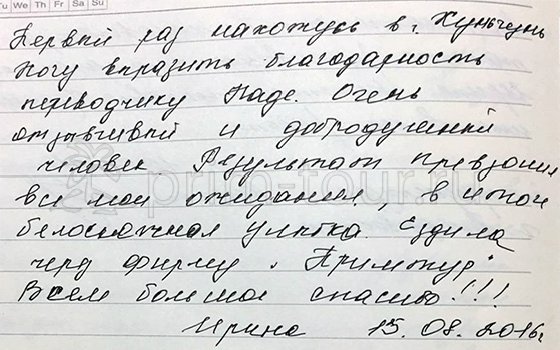 Tu We Th Fr Sa Su
Первый раз нахожусь в г. Хуньчунь
Могу выразить благодарность
переводчику Наде. Очень
отзывчивый и добродушный
человек Результат превзошел
все мои ожидания, в итоге
белоснежная улыбка. Ездила
через фирму "Примтур"
Всем большое спасибо!!!
Ирина 15.08.2016г
prim-tour.ru